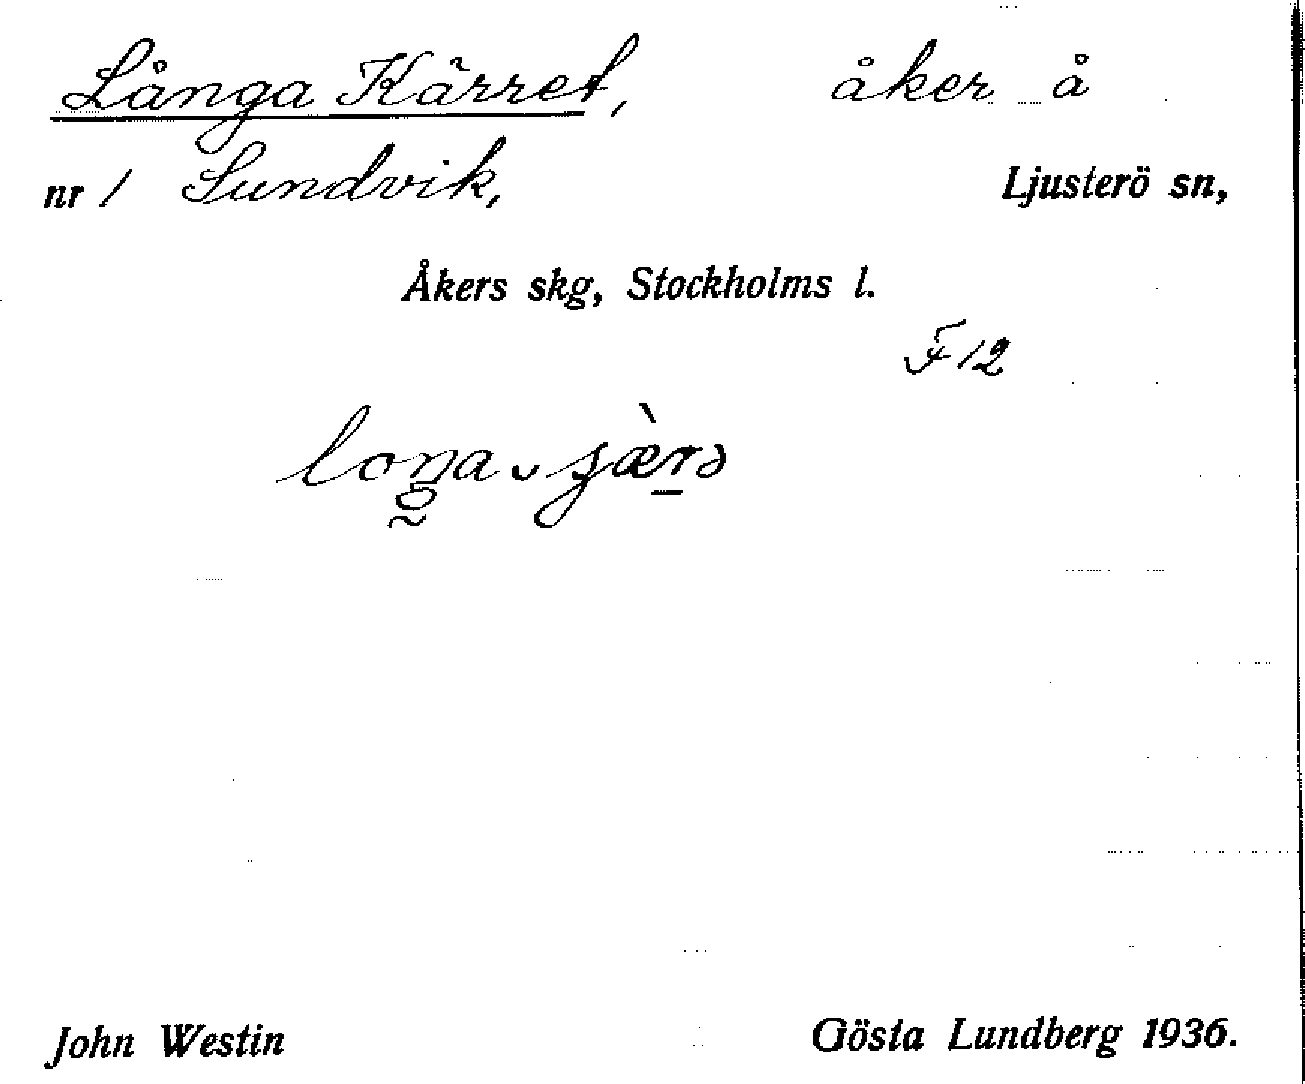 Långa Kärret, åker å
nr 1 Sundvik, Ljusterö sn,
Åkers skg, Stockholms l.
F12
John Westin Gösta Lundberg 1936.